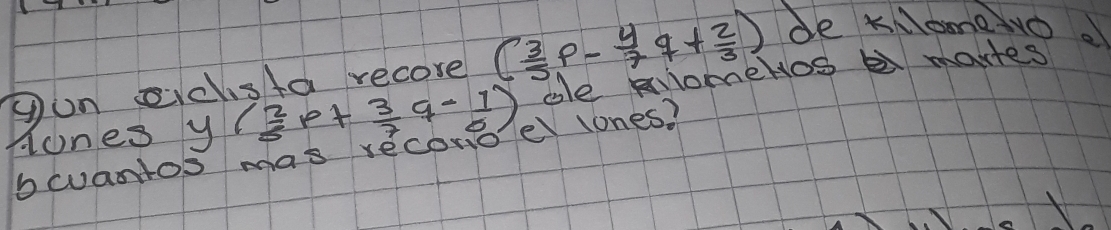 9) un ciclista recore (3/5 p - 4/7 q + 2/3) de kilometro el
lunes y (2/5 p + 3/7 q - 1/6) de kilometros el martes
b cuantos mas recorrio el lones?